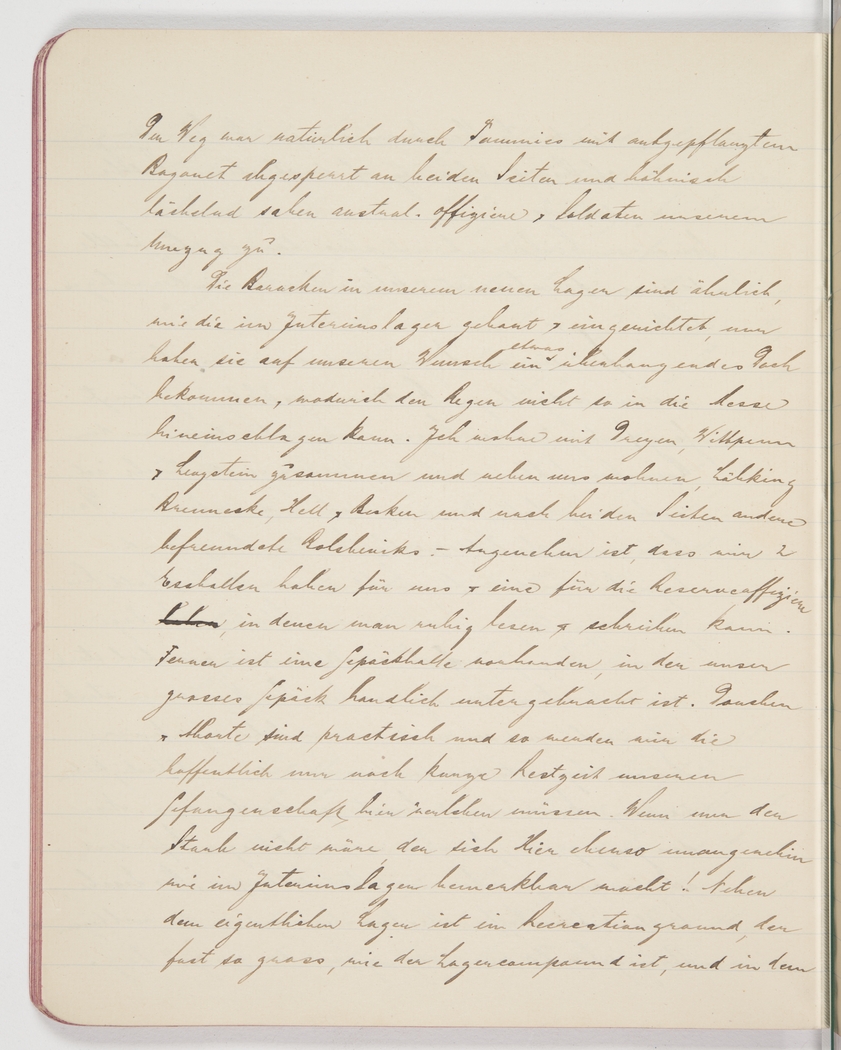 Der Weg war natürlich durch Tommies mit aufgepflanztem
Bayonet abgesperrt an beiden Seiten und höhnisch
lächelnd sahen austral. Offiziere & Soldaten unserem
Umzug zu.
Die Baracken in unserem neuen Lager sind ähnlich,
wie die im Interimslager gebaut & eingerichtet, nur
haben sie auf unseren Wunsch ein etwas überhangendes Dach
bekommen, wodurch der Regen nicht so in die Messe
hineinschlagen kann. Ich wohne mit Dreyer, Wittpenn
& Lengstein zusammen und neben uns wohnen, Lübking
Brennecke, Hell & Becken und nach beiden Seiten andere
befreundete Bolsheviks. – Angenehm ist, dass wir 2
Esshallen haben für uns & eine für die Reserveoffiziere
, in denen man ruhig lesen & schreiben kann.
Ferner ist eine Gepäckhalle vorhanden, in der unser
grosses Gepäck handlich untergebracht ist. Douchen
& Aborte sind practisch und so werden wir die
hoffentlich nur noch kurze Restzeit unserer
Gefangenschaft hier verleben müssen. Wenn nur der
Staub nicht wäre, der sich hier ebenso unangenehm
wie im Interimslager bemerkbar macht! Neben
dem eigentlichen Lager ist ein Recreationground, der
fast so gross, wie der Lagercompound ist, und in dem